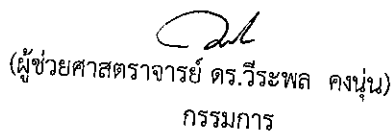 (ผู้ช่วยศาสตราจารย์ ดร.วีระพล คงนุ่น)
กรรมการ